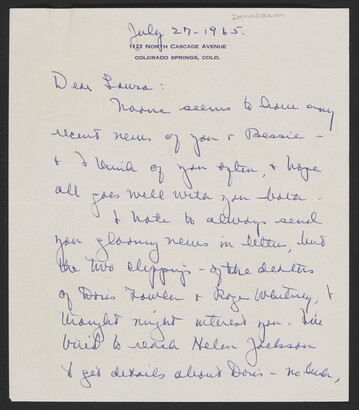 Donaldson
July 27 - 1965.
1123 NORTH CASCADE AVENUE
COLORADO SPRINGS, COLO.
Dear Laura:
No one seems to have any
recent news of you & Bessie -
& I think of you often, & hope
all goes well with you both -
I hate to always send
you gloomy news in letters, but
the two clippings - of the deaths
of Doris & Roge Whitney, I
thought might interest you. I've
tried to reach Helen Jackson
to get details about Doris - no luck,